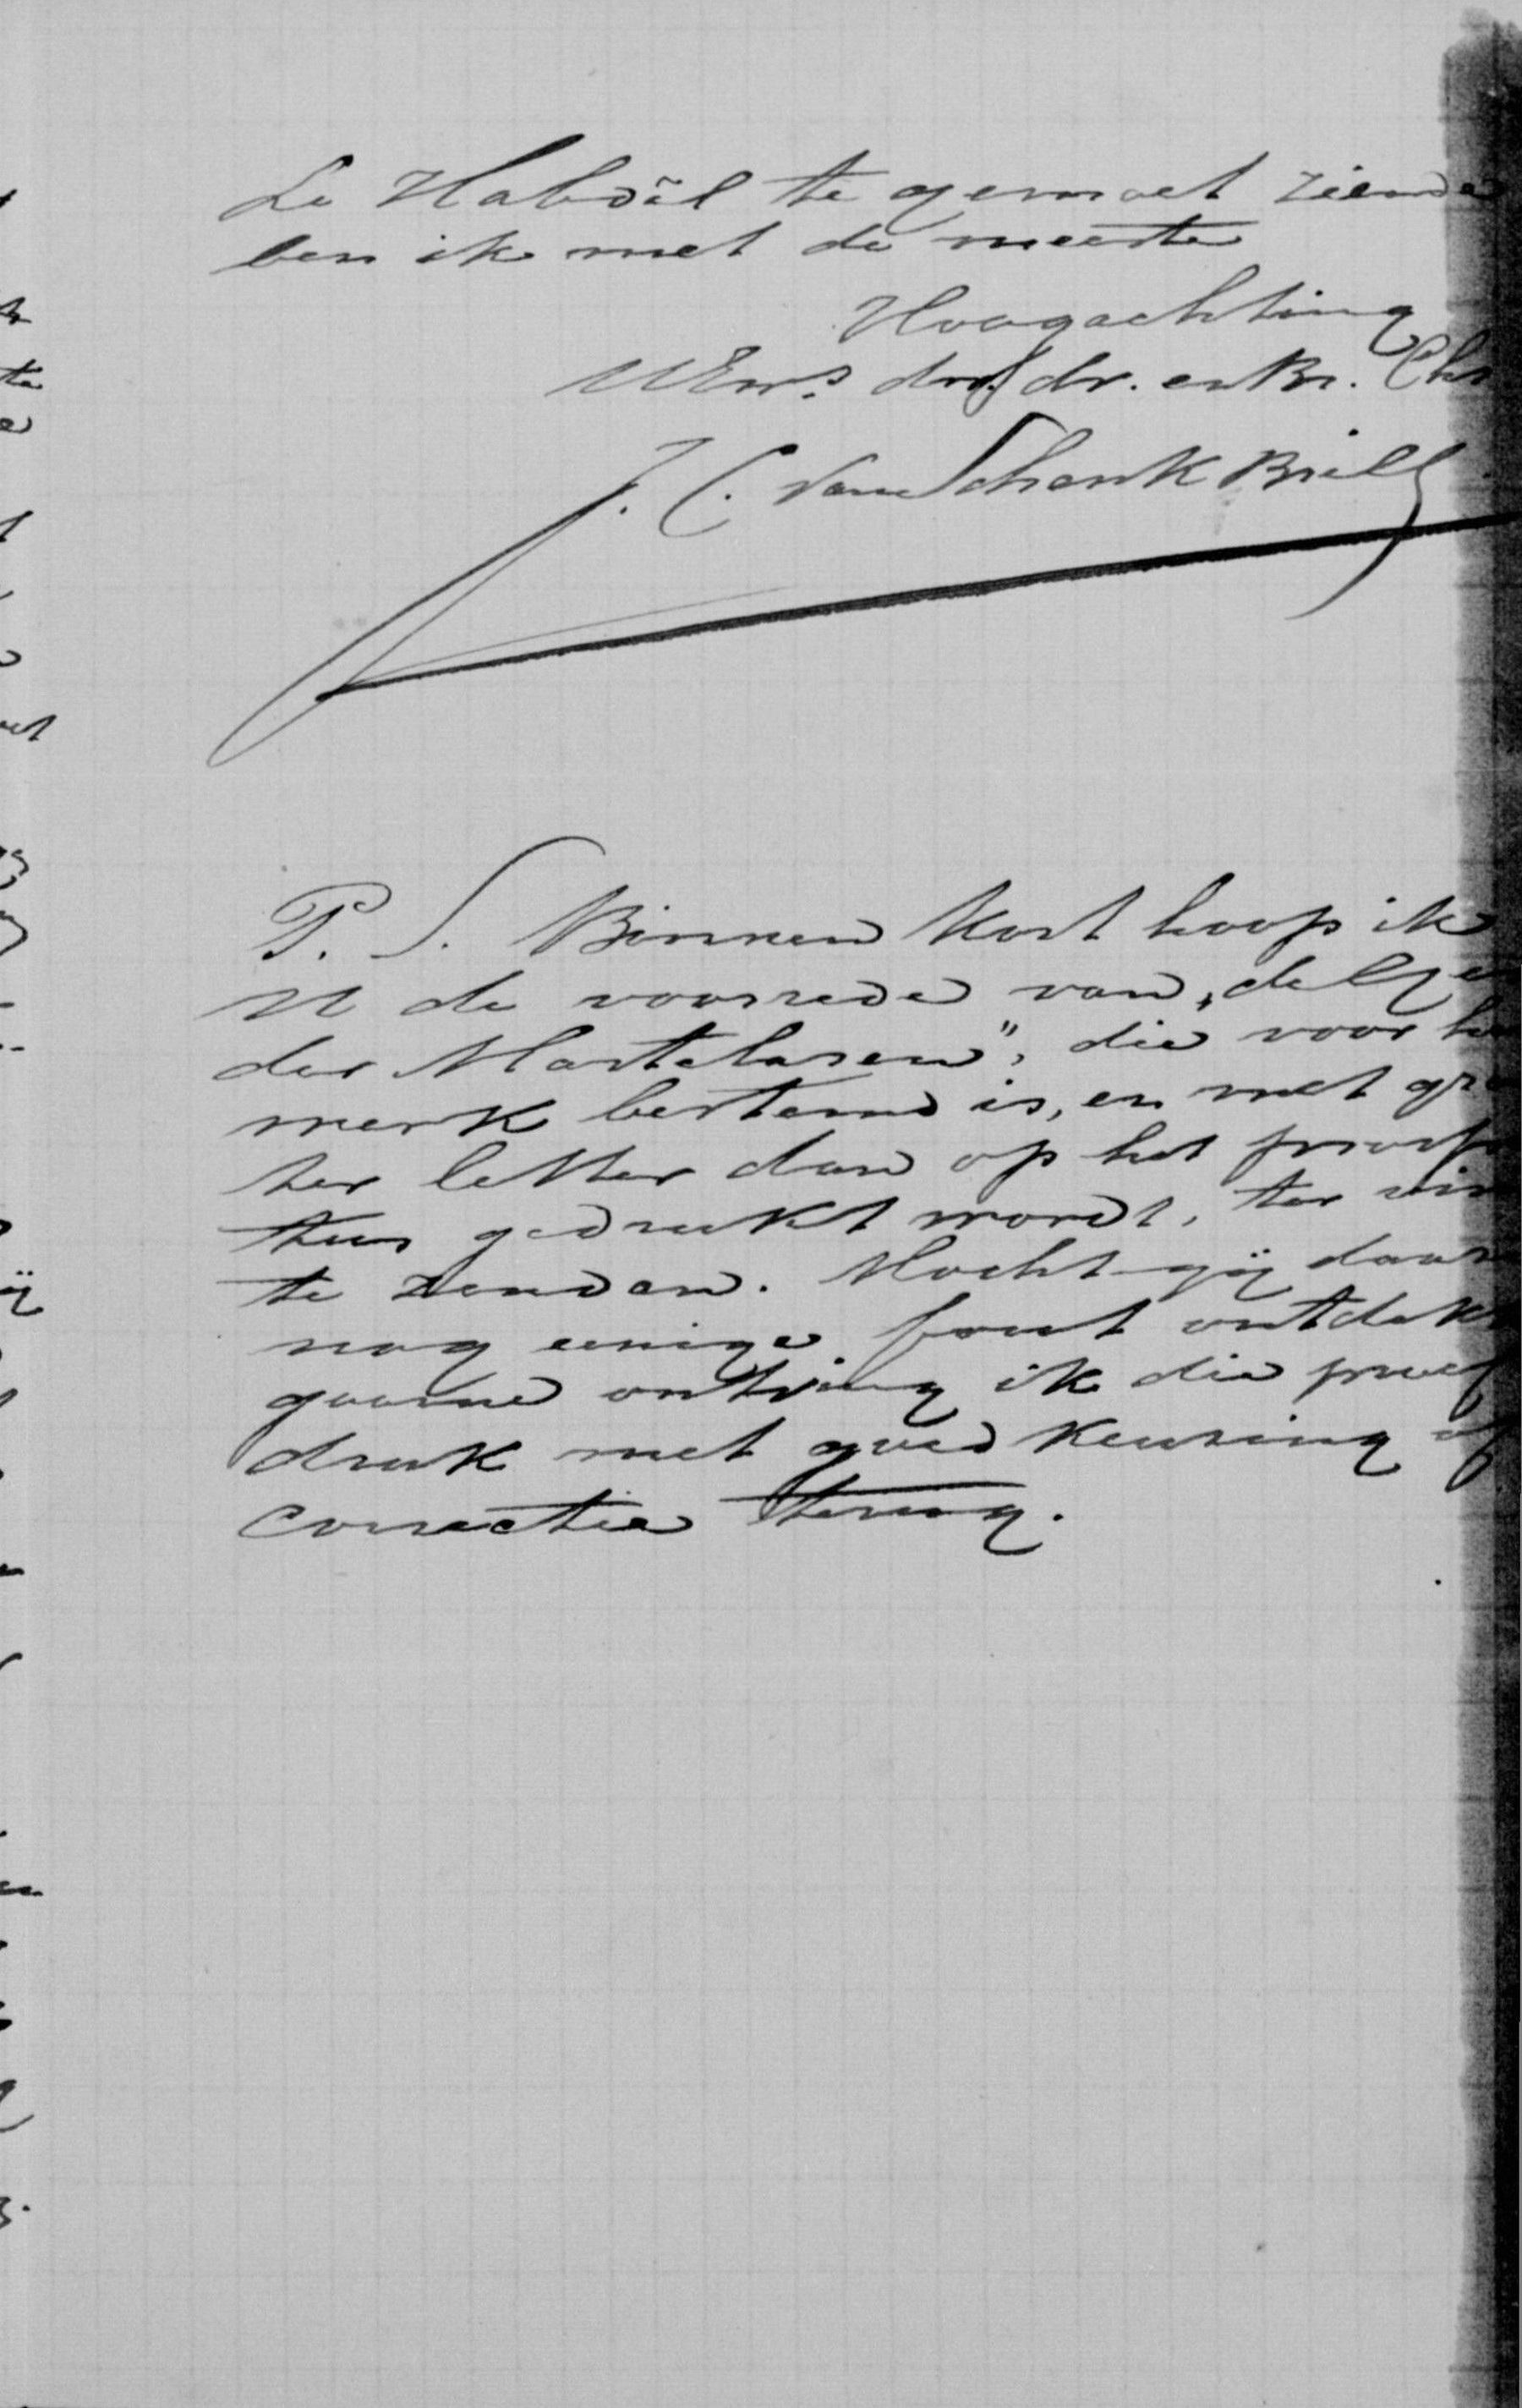 te gemoet ziende
ben ik met de meeste
Hoogachting
UEws dr. en Br.
J. C. van Schenk Brill
P. S. Binnen kort hoop ik
U de voorrede van
der Martelaren", die voor
werk bestemd is, en met
ter letter dan op het
tus gedrukt wordt, ter
te zenden. Mocht gij
nog eenige fout
gaarne ontving ik die proef
druk met goedkeuring of
correctie terug.